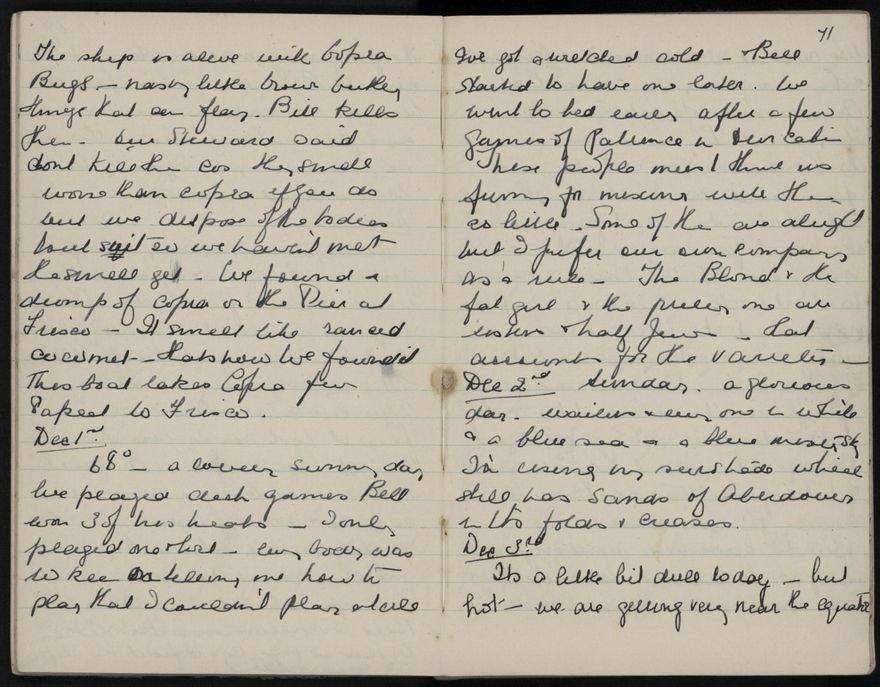 The ship is alive with Copra
Bugs – nasty little brown beetley
things that can fly. Bill kills
them – our Steward said
dont kill the cos they smell
worse than copra if you do
but we dispose of the bodies
tout suit so we havent met
the smell yet – We found a
dump of copra on the Pier at
Frisco – It smelt like rancid
cocoanut – thats how we found it
This boat takes Copra from
Papeet to Frisco.
Dec 1st
68° – a lovely sunny day
We played deck games Bill
won 3 of his heats – I only
played one & lost – every body was
so keen on telling me how to
play that I couldnt play at all
71
Ive got a wretched cold – & Bill
started to have one later. We
went to bed early after a few
games of Patience in our cabin
These people must think us
funny for mixing with them
so little – Some of the are alright
but I prefer our own company
as a rule – The Blond & the
fat girl & the pretty one are
sisters & half Jews – that
accounts for the varieties –
Dec 2nd Sunday. a glorious
day. waiters & every one in white
& a blue sea & a blue misty sky
I'm using my sunshade which
still has Sands of Aberdovey
in its folds & creases.
Dec 3rd
Its a little bit dull today – but
hot – we are getting very near the equator